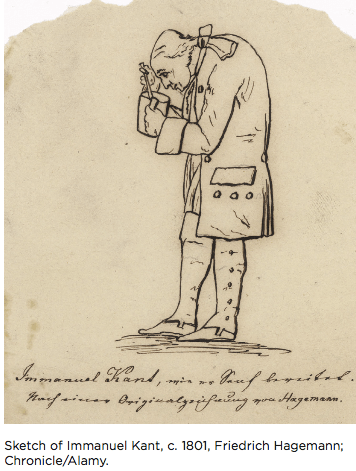 Immanuel Kant, wie er Senf bereitet.
Nach einer Originalzeichnung von Hagemann.
Sketch of Immanuel Kant, c. 1801, Friedrich Hagemann;
Chronicle/Alamy.